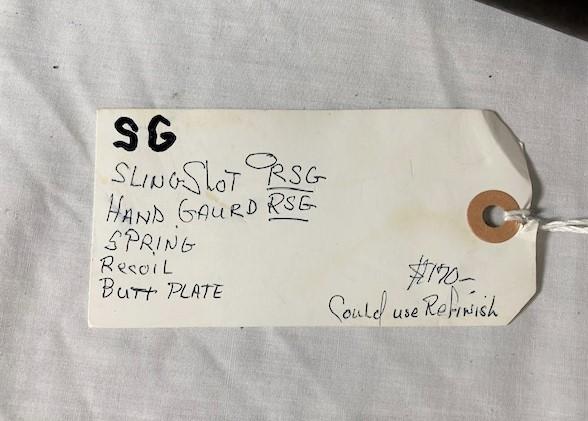 SG
SLING SLOT RSG
HAND GAURD RSG
SPRING
Recoil
Butt PLATE
$170-
Could use Refinish